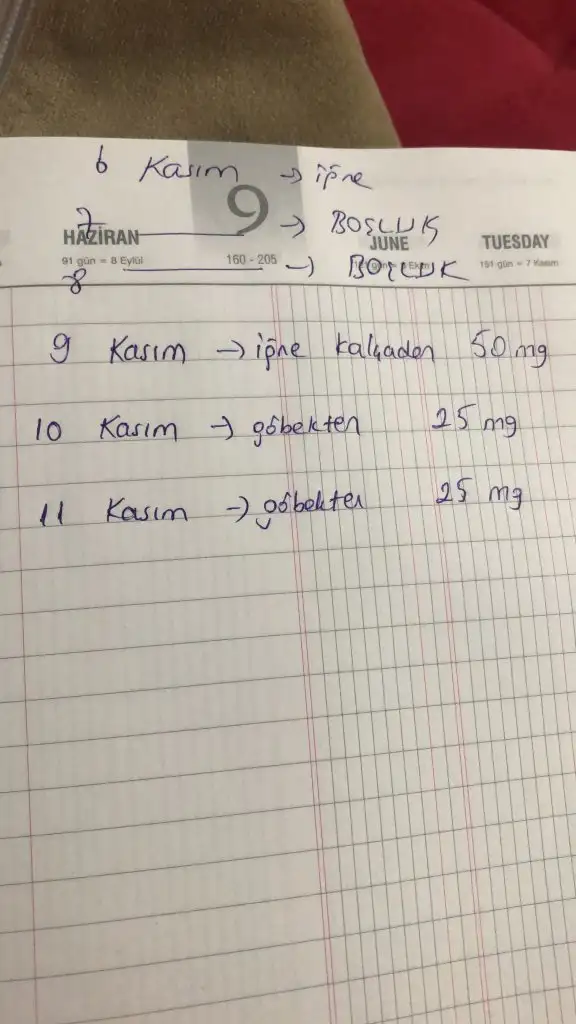 6 Kasım → iğne
9
7 → BOŞLUK
HAZİRAN JUNE TUESDAY
91 gün = 8 Eylül 160 - 205 151 gün = 7 Kasım
8 → BOŞLUK
9 Kasım → iğne kalçadan 50 mg
10 Kasım → göbekten 25 mg
11 Kasım → göbekten 25 mg